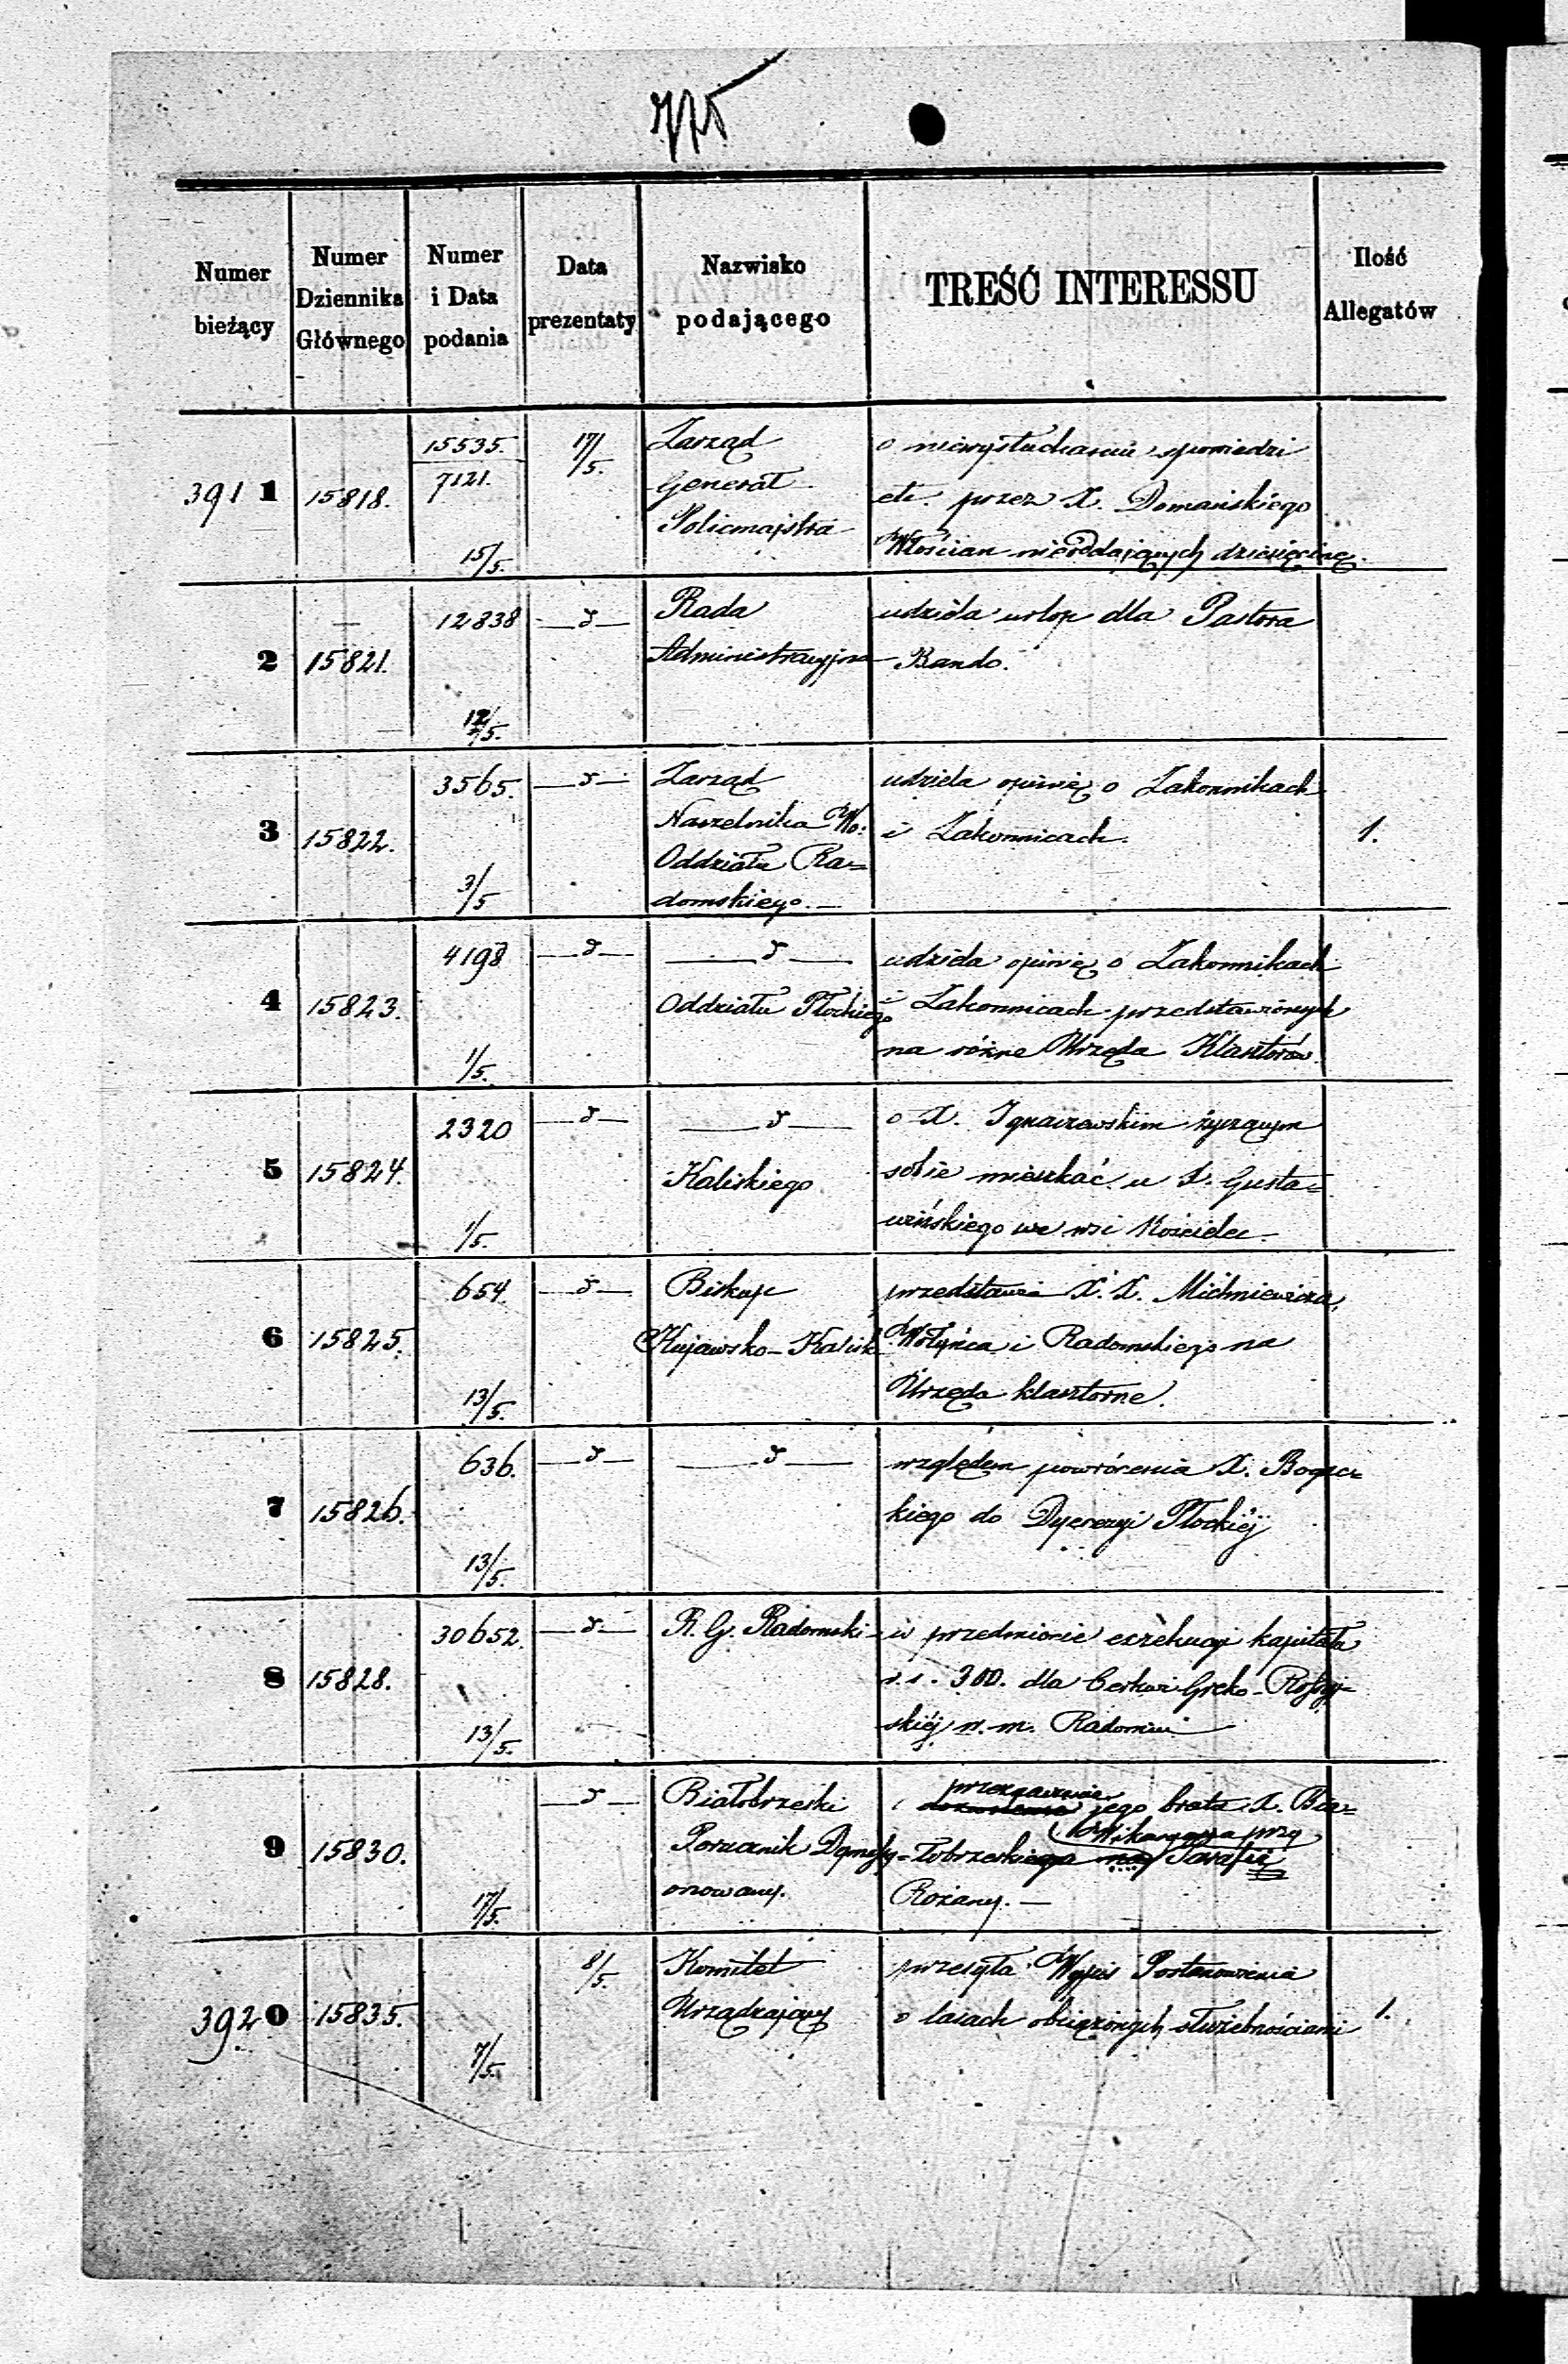 Numer bieżący | Numer Dziennika Głównego | Numer i Data podania | Data prezentaty | Nazwisko podającego | TREŚĆ INTERESSU | Ilość Allegatów
391 1 | 15818. | 15535. 7121. 15/5. | 17/5. | Zarząd
Generał
Policmajstra | o niewysłuchaniu spowiedzi
etc. przez X. Domańskiego
Włościan nieoddających dziesięcinę.
2 | 15821. | 12838 12/5. | —d— | Rada
Administracyjna | udziela urlop dla Pastora
Rando.
3 | 15822. | 3565. 3/5 | —d— | Zarząd
Naczelnika Wo:
Oddziału Ra=
domskiego.— | udziela opinię o Zakonnikach
i Zakonnicach. | 1.
4 | 15823. | 4198 1/5. | —d— | —d—
Oddziału Płockiego | udziela opinię o Zakonnikach
i Zakonnicach przedstawionych
na różne Urzęda Klasztorów.
5 | 15824. | 2320 1/5. | —d— | —d—
Kaliskiego | o X. Ignaczewskim życzącym
sobie mieszkać u X. Gusta=
wińskiego we wsi Kościelec.
6 | 15825. | 654 13/5. | —d— | Biskup
Kujawsko-Kalisk | przedstawia X.X. Michniewicza,
Wołyńca i Radomskiego na
Urzęda klasztorne.
7 | 15826. | 636. 13/5. | —d— | —d— | względem powrócenia X. Bogac=
kiego do Dyecezyi Płockiéj
8 | 15828. | 30652. 13/5. | —d— | R. G. Radomski | w przedmiocie exekucyi kapitała
r.s. 300. dla Cerkwi Greko-Rossyj=
skiéj w. m. Radomiu
9 | 15830. | 17/5. | —d— | Białobrzeski
Porucznik Dymisy=
onowany. | przeznaczenie
jego brata X. Bia=
Wikaryusza przy
łobrzeskiego na Parafię
Rożany.—
392 0 | 15835. | 7/5. | 8/5. | Komitet
Urządzający | przesyła Wypis Postanowienia
o lasach obciążonych służebnościami | 1.